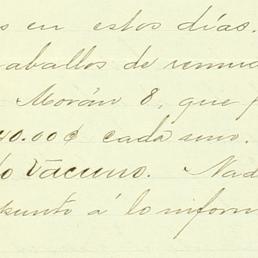 s en estos días.
aballos de remu
Morán 8, que
40.00¢ cada uno.
o Vacuno. Nad
punto á lo inform